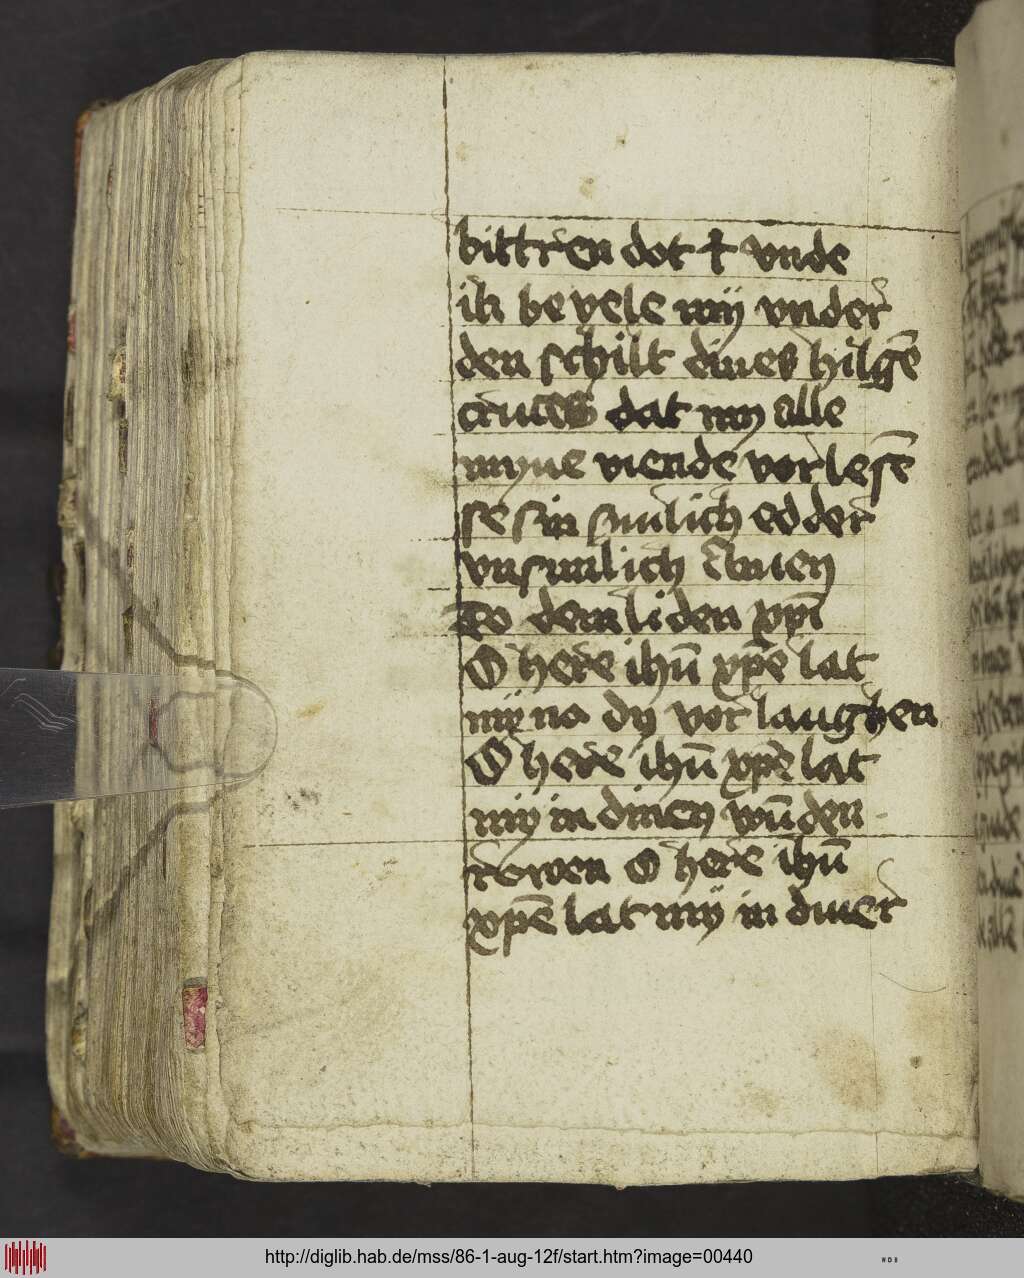 bittren dot † vnde
ik bevele mÿ vnder
den schilt dines hilgē
cruces dat my alle
myne viende vorlesē
se sin sunlich edder
vnsunlich Amen
To dem liden xpi̅
O here ihū xpē lat
mÿ na dy vorlanghen
O here ihū xpē lat
mÿ in dinen wūden
rowen O here ihū
xpē lat mÿ in diner
http://diglib.hab.de/mss/86-1-aug-12f/start.htm?image=00440